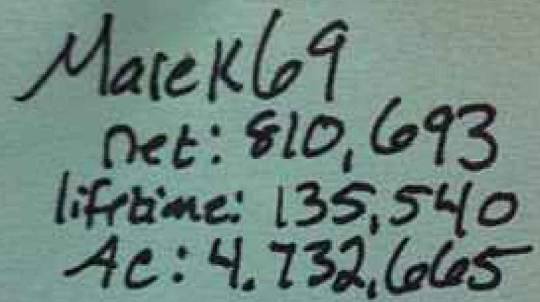 Marek69
net: 810,693
lifetime: 135,540
Ac: 4.732,665